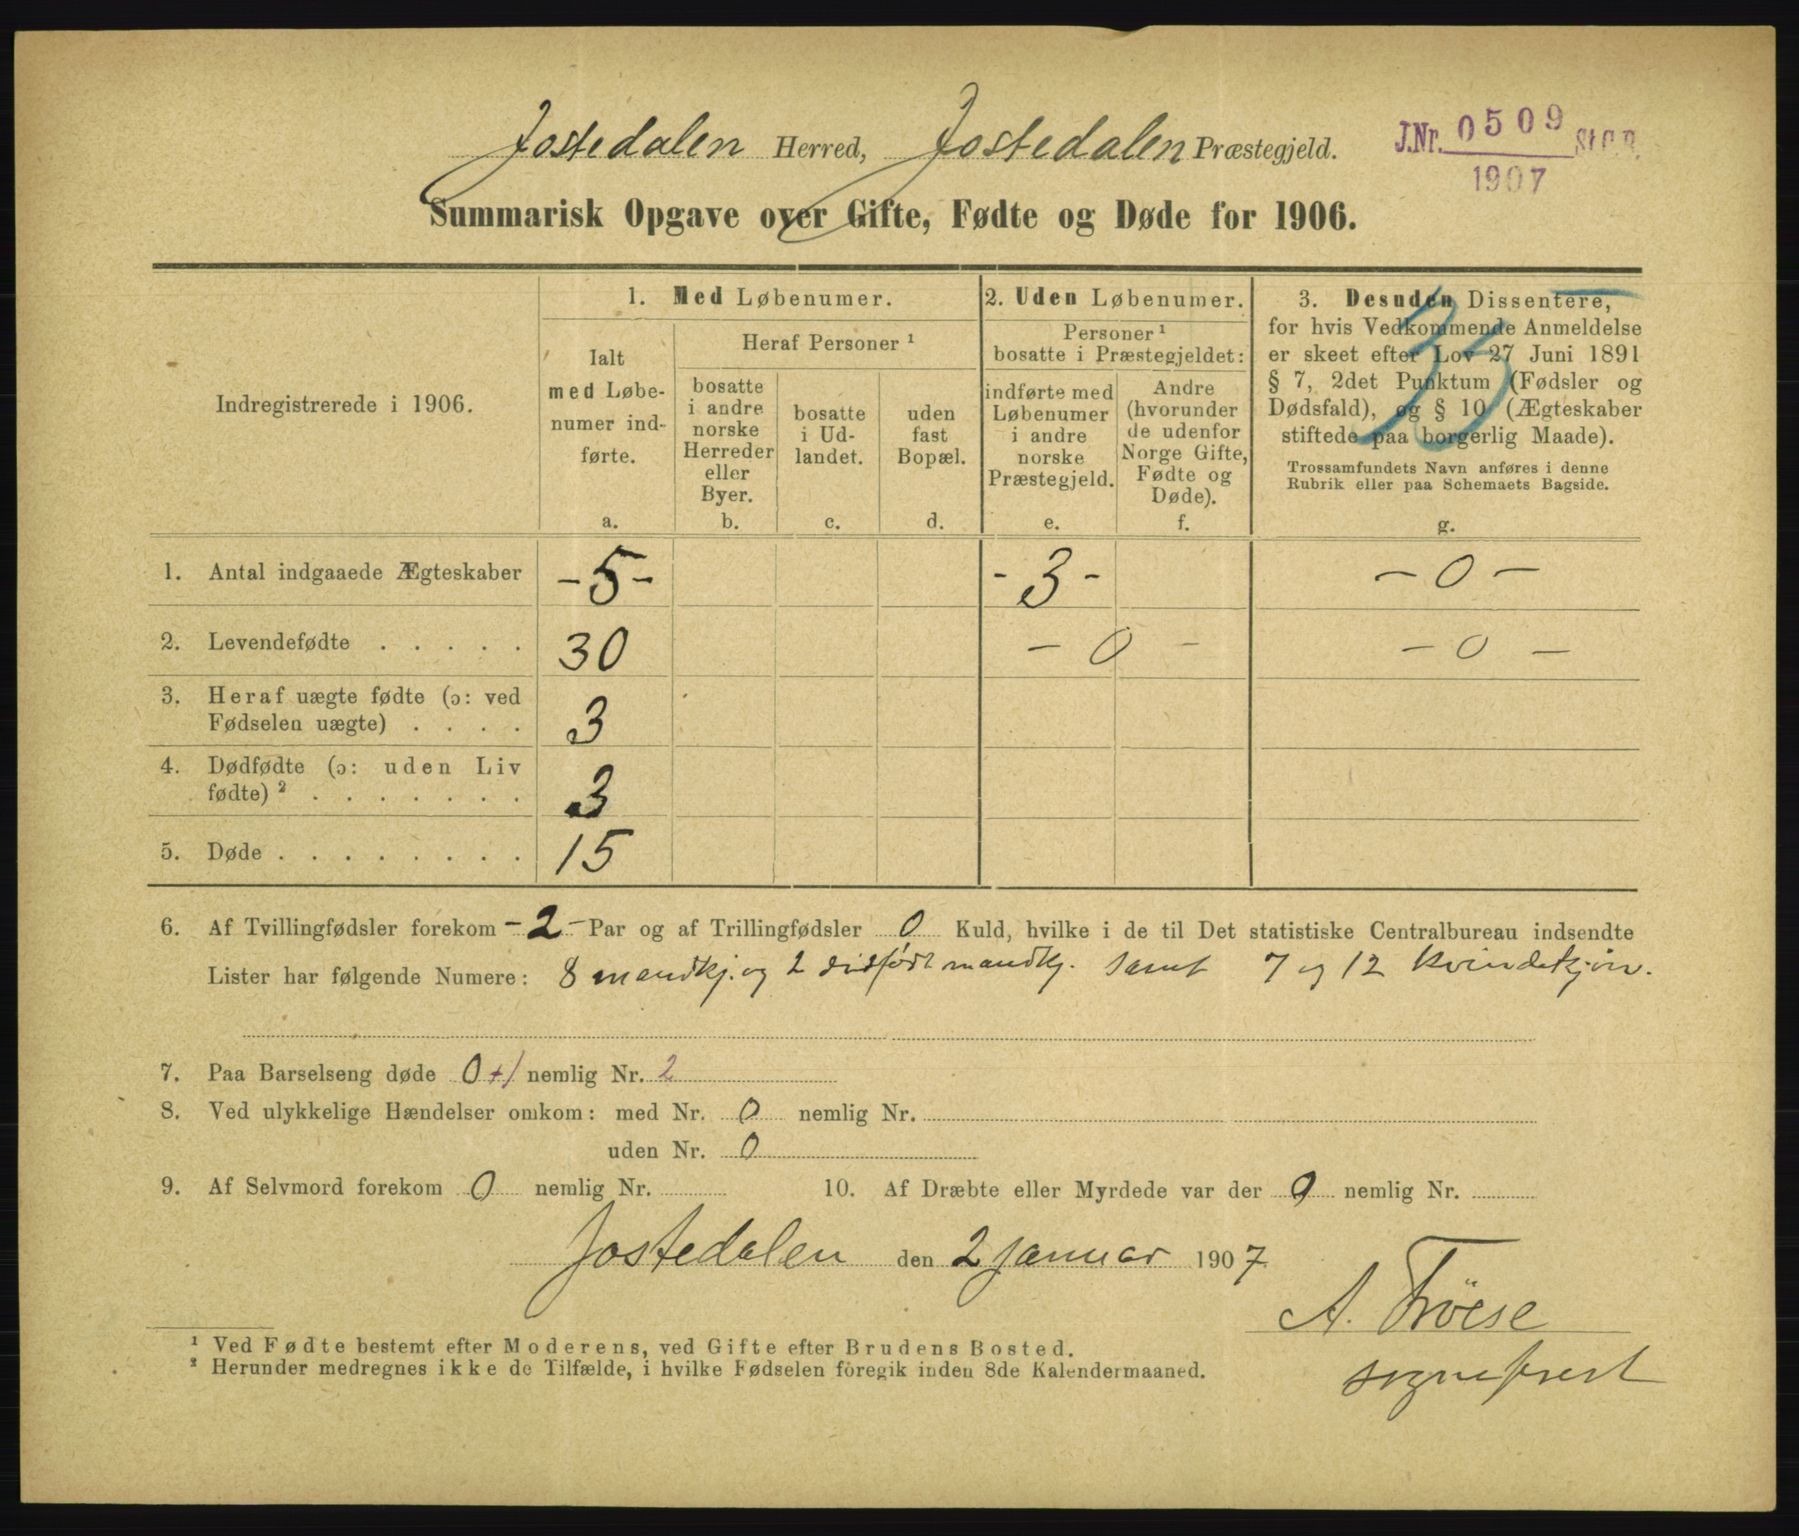 Jostedalen Herred, Jostedalen Præstegjeld.
J.Nr. 0509 St.C.B.
1907
Summarisk Opgave over Gifte, Fødte og Døde for 1906.
33
Indregistrerede i 1906.
1. Med Løbenumer.
Ialt
med Løbe-
numer ind-
førte.
a.
Heraf Personer ¹
bosatte
i andre
norske
Herreder
eller
Byer.
b.
bosatte
i Ud-
landet.
c.
uden
fast
Bopæl.
d.
2. Uden Løbenumer.
Personer ¹
bosatte i Præstegjeldet:
indførte med
Løbenumer
i andre
norske
Præstegjeld.
e.
Andre
(hvorunder
de udenfor
Norge Gifte,
Fødte og
Døde).
f.
3. Desuden Dissentere,
for hvis Vedkommende Anmeldelse
er skeet efter Lov 27 Juni 1891
§ 7, 2det Punktum (Fødsler og
Dødsfald), og § 10 (Ægteskaber
stiftede paa borgerlig Maade).
Trossamfundets Navn anføres i denne
Rubrik eller paa Schemaets Bagside.
g.
1. Antal indgaaede Ægteskaber -5- -3- -0-
2. Levendefødte . . . . . 30 -0- -0-
3. Heraf uægte fødte (ɔ: ved
Fødselen uægte) . . . . 3
4. Dødfødte (ɔ: uden Liv
fødte) ² . . . . . . . 3
5. Døde . . . . . . . . 15
6. Af Tvillingfødsler forekom -2- Par og af Trillingfødsler 0 Kuld, hvilke i de til Det statistiske Centralbureau indsendte
Lister har følgende Numere: 8 mandkj. og 2 dødfødt mandkj. samt 7 og 12 kvindekjøn.
7. Paa Barselseng døde 0+1 nemlig Nr. 2
8. Ved ulykkelige Hændelser omkom: med Nr. 0 nemlig Nr.
uden Nr. 0
9. Af Selvmord forekom 0 nemlig Nr. 10. Af Dræbte eller Myrdede var der 0 nemlig Nr.
Jostedalen den 2 januar 1907
A. Tröese
sogneprest
¹ Ved Fødte bestemt efter Moderens, ved Gifte efter Brudens Bosted.
² Herunder medregnes ikke de Tilfælde, i hvilke Fødselen foregik inden 8de Kalendermaaned.